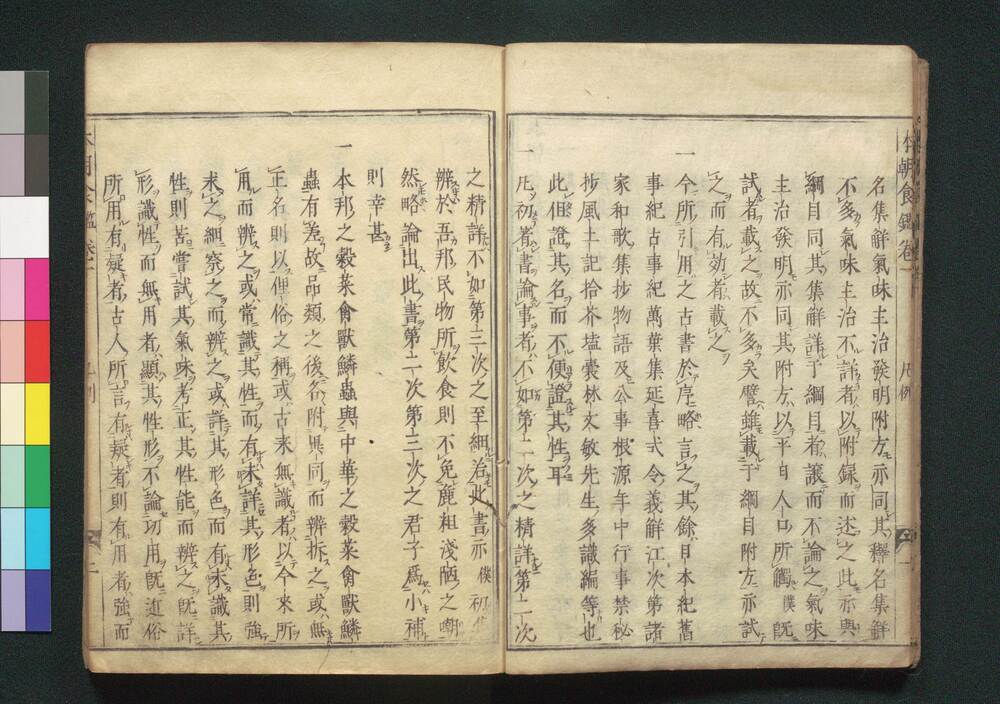 本朝食鑑卷一 凡例 一
名集解氣味主治發明附方亦同其釋名集解
不多氣味主治不詳者以附録而述之此亦與
綱目同其集解詳于綱目者讓而不論之氣味
主治發明亦同其附方以平日人口所觸僕既
試者載之故不多矣譬雖載于綱目附方亦試
之而有効者載之
一今所引用之古書於玆略言之其餘日本紀舊
事紀古事紀萬葉集延喜式令義解江次第諸
家和歌集抄物語及公事根源年中行事禁秘
抄風土記拾芥壒囊林文敏先生多識編等也
此但證其名而不便證其性耳
一凡初者書論事者不如第二次之精詳第二次
之精詳不如第三次之至細若此書亦僕初
辨於吾邦民物所飲食則不免麁粗淺陋之嘲
然略論出此書第二次第三次之君子爲小補
則幸甚
一本邦之穀菜禽獸鱗蟲與中華之穀菜禽獸鱗
蟲有差故品類之後各附異同而辨拆之或無
正名則以俚俗之稱或古來無識者以今來所
用而辨之或常識其性而有未詳其形色則強
求之細察之而辨之或詳其形色而有未識其
性則苦嘗試其氣味考正其性能而辨之既詳
形識性而無用者顯其性形不論功用既逛俗
所用有疑者古人所言有疑者則有用者強而
本朝食鑑卷一 凡例 二